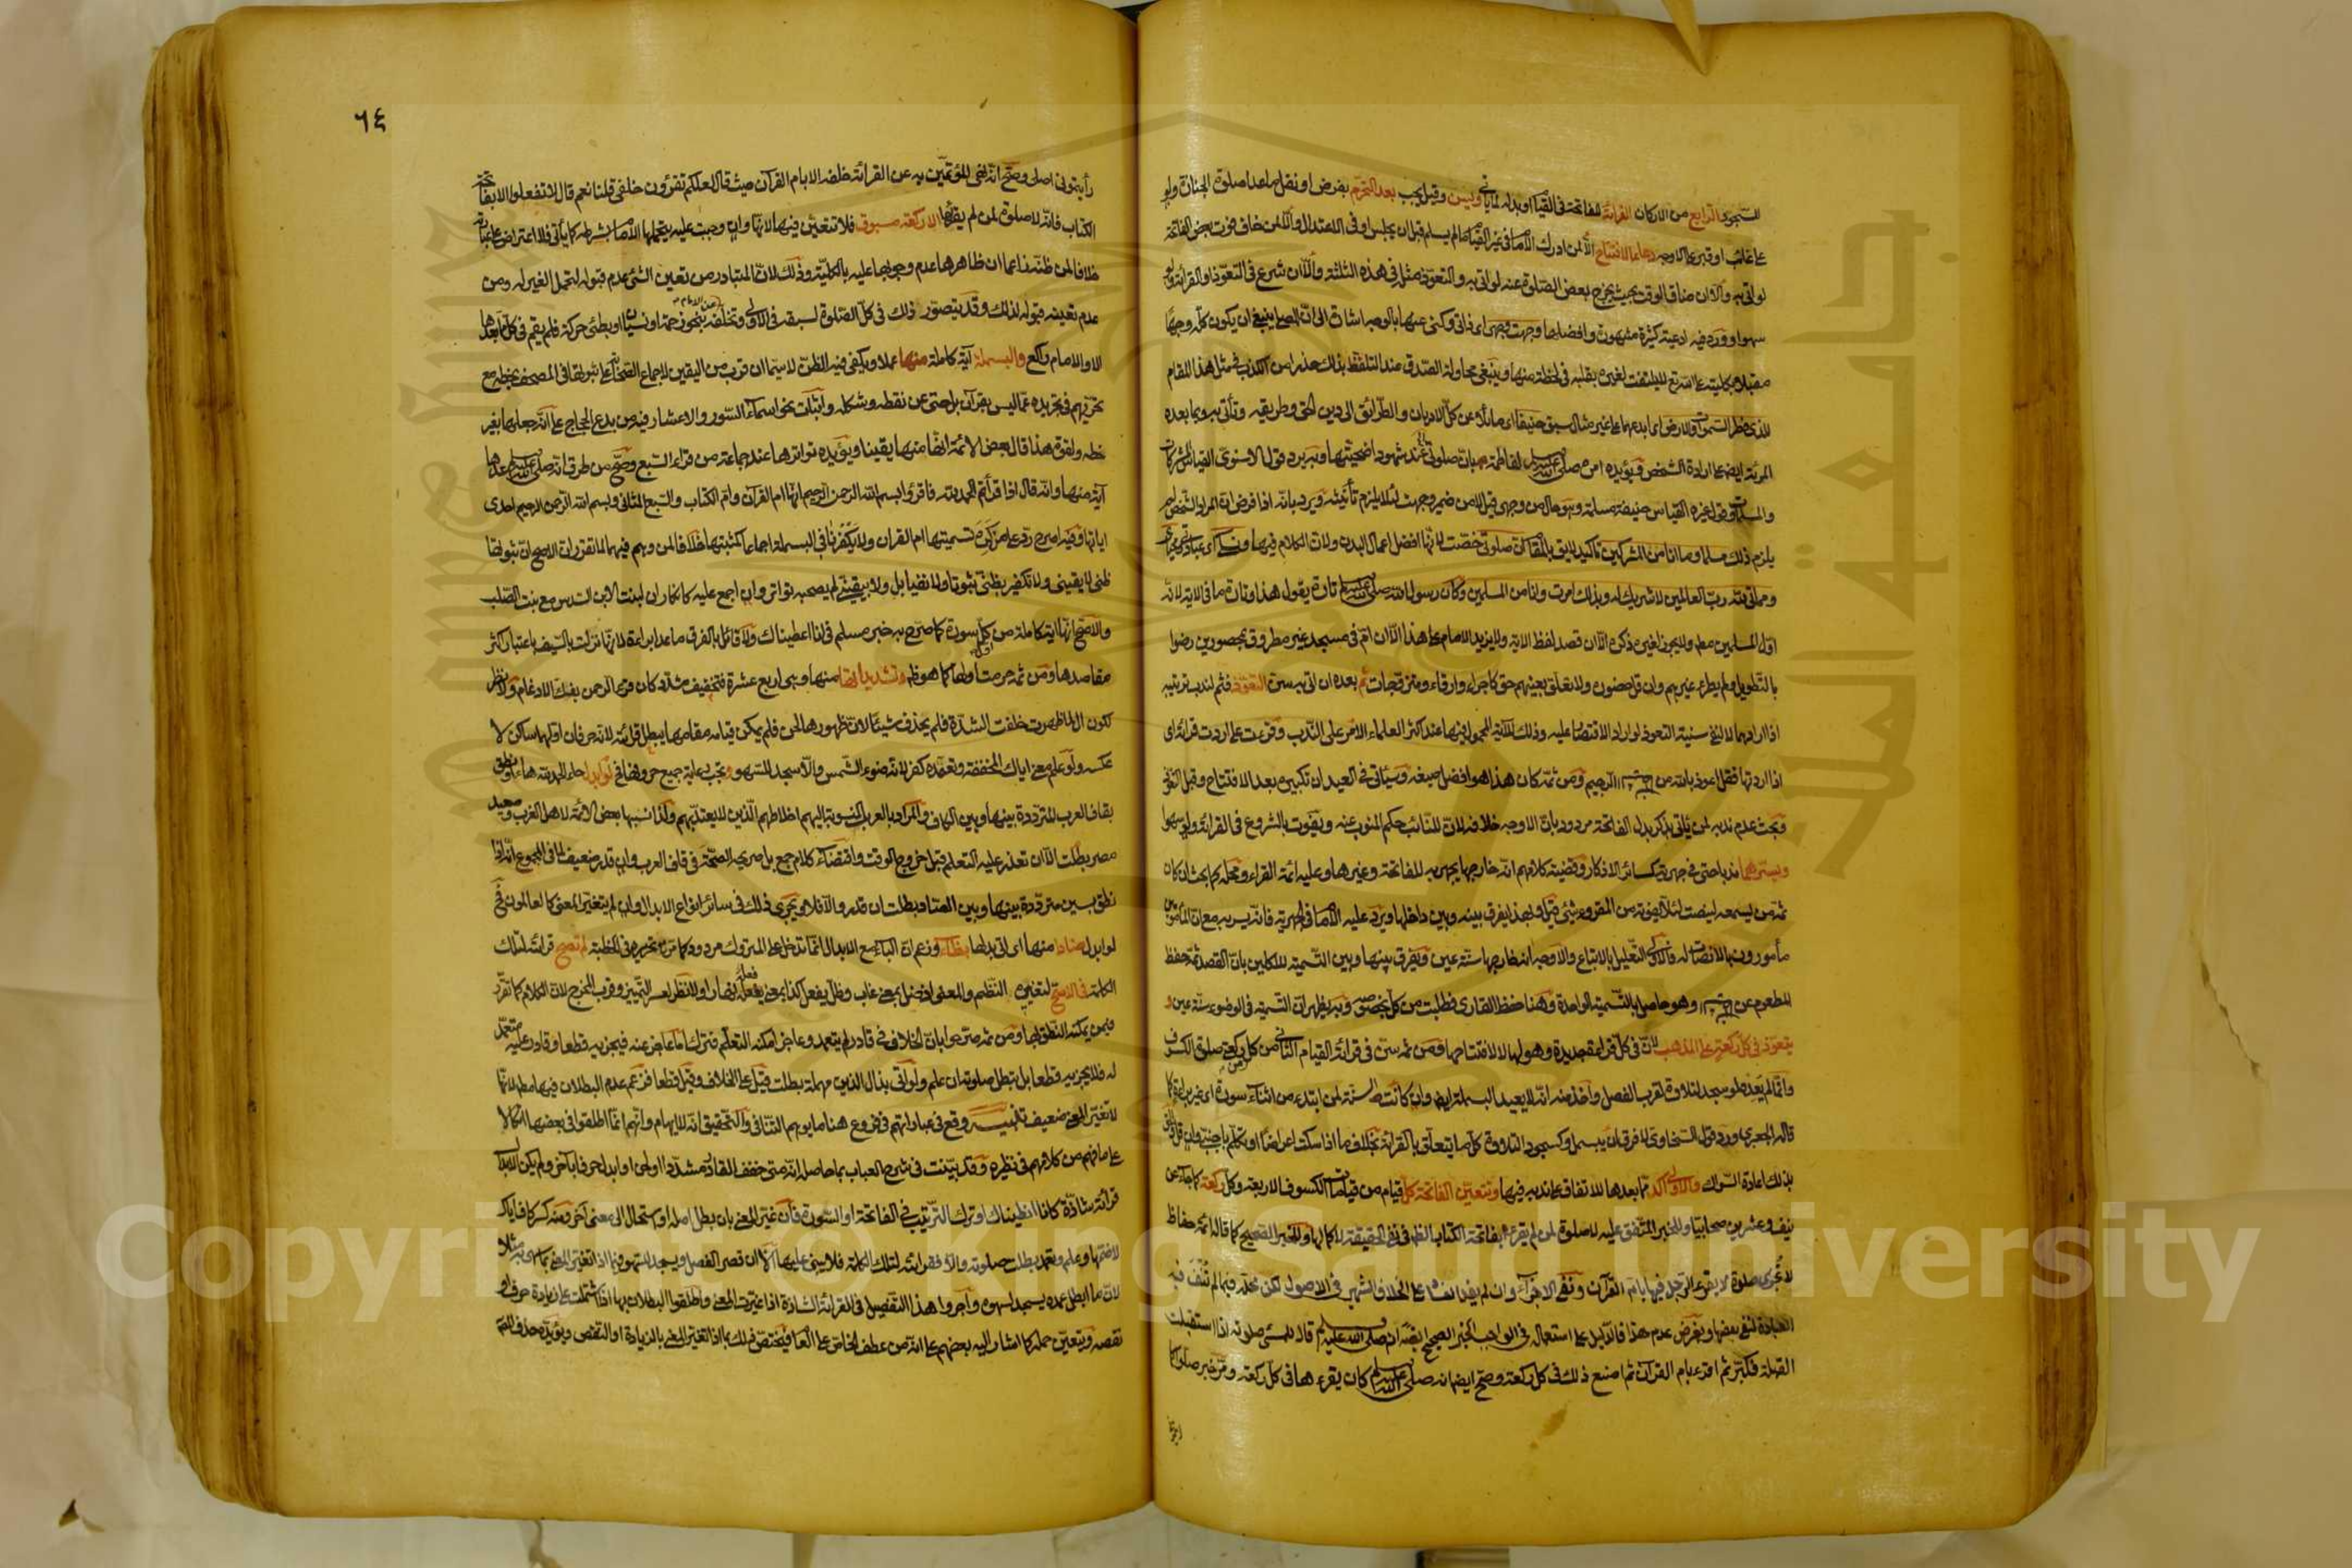 للسجود الرابع من الاركان القرائة للفاتحة في القيام او بدله لما ياتي ويسن وقيل يجب بعد التحرم بفرض او نفل ماعدا صلوة الجنازة ولو
على غائب او قبر على الاوجه دعاء الافتتاح الا لمن ادرك الامام في غير القيام ما لم يسلم قبل ان يجلس او في الاعتدال والا لمن خاف فوت بعض الفاتحة
لو اتى به والا ان ضاق الوقت بحيث يخرج بعض الصلوة عنه لو اتى به والتعوذ مثله في هذه الثلثة والا ان شرع في التعوذ او القرائة ولو
سهوا وورد فيه ادعية كثيرة مشهورة وافضلها وجهت وجهي اى ذاتي وكنى عنها بالوجه اشارة الى ان المصلى ينبغي ان يكون كله وجها
مقبلا بكليته على الله تع لا يلتفت لغيره بقلبه في لحظة منها وينبغي محاولة الصدق عند التلفظ بذلك حذرا من الكذب في مثل هذا المقام
للذي فطر السموات والارض اى ابدعهما على غير مثال سبق حنيفا اى مائلا عن كل الاديان والطرائق الى دين الحق وطريقه وتأتي به وبما بعده
المرئة ايضا على ارادة الشخص ويؤيده امره صلى الله عليه وسلم لفاطمة بان صلوتي عند شهود اضحيتها وبه يرد قول الاسنوى القياس المشركات
يلزم ذلك مسلما وما انا من المشركين تاكيد لايق بالمقام ان صلوتي خصت لانها افضل اعمال البدن ولان الكلام فيها ونسكي اى عبادتي
ومماتي لله رب العالمين لا شريك له وبذلك امرت وانا من المسلمين وكان رسول الله صلى الله عليه وسلم تارة يقول هذا وتارة ما في الاية لانه
اول المسلمين مطه ولا يجوز لغيره ذكره الا ان قصد لفظ الاية ولا يزيد الامام على هذا الا ان ام في مسجد غير مطروق بمحصورين رضوا
بالتطويل ولم يطرء غيرهم وان قل حضوره ولا تعلق بعينهم حق كاجراء وارقاء ومتزوجات ثم بعده ان اتى به يسن التعوذ فثم لندب ترتيبه
اذا ارادهما لا لنفي سنية التعوذ لو اراد الاقتصار عليه وذلك للآية المحمول فيها عند اكثر العلماء الامر على الندب وقرءت على اردت قرائة اى
اذا اردتها فقل اعوذ بالله من الرجيم ومن ثمة كان هذا هو افضل صيغه وسيأتي في العيد ان تكبيره بعد الافتتاح وقبل التعوذ
وبحث عدم ندبه لمن يأتي بذكر بدل الفاتحة مردود بان الاوجه خلافه لان للنائب حكم المنوب عنه ويفوت بالشروع في القرائة ولو سهوا
ويسرهما ندبا حتى في جهرية كسائر الاذكار وقضية كلامهم انه خارجها يجهر به للفاتحة وغيرها وعليه ائمة القراء ومحله كما بحث ان كان
ثمة من يسمعه لينصت لئلا يفوته من المقروء شئ قيل ولهذا يفرق بينه وبين داخلها ويرد عليه الامام في الجهرية فانه يسر به مع ان المأمومين
مأمورون بالانصات له فالاولى التعليل بالاتباع والاوجه انه خارجها سنة عين ويفرق بينها وبين التسمية للاكلين بان القصد ثمة حفظ
للطعوم عن وهو حاصل بالتسمية الواحدة وهنا حفظ القارى فطلبت من كل بخصوصه وبه يظهر ان التسمية في الوضوء سنة عين و
يتعوذ في كل ركعة على المذهب لان في كل قراءة جديدة وهو لها لا لافتتاحها ومن ثمه سن في قرائة القيام الثاني من كل ركعة صلوة الكسوف
وانما لم يعده لو سجد لتلاوة لقرب الفصل واخذ منه انه لا يعيد البسملة ايضا وان كانت السنة لمن ابتدء من اثناء سورة اى غير براءة كما
قاله الجعبرى ورد قول السخاوى لا فرق ان يبسمل وكسجود التلاوة كل ما يتعلق بالقرائة بخلاف ما اذا سكت اعراضا او تكلم باجنبي وان قل
بذلك اعادة السواك والاولى اكد مما بعدها للاتفاق على ندبه فيها وتتعين الفاتحة كل قيام من قيامات الكسوف الاربعة وكل ركعة كما جاء عن
نيف وعشرين صحابيا وللخبر المتفق عليه لا صلوة لمن لم يقرء بفاتحة الكتاب الظاهر في نفي الحقيقة لا كمالها وللخبر الصحيح كما قاله ائمة حفاظ
لا تجزى صلوة لا يقرء الرجل فيها بام القرآن ونفي الاجزاء وان لم يفد الفساد على الخلاف الشهير في الاصول لكن محله فيما لم تنف فيه
العبادة لنفي بعضها وبفرض عدم هذا فالدليل على استعماله في الواجب الخبر الصحيح ايضا انه صلى الله عليه وسلم قال للمسئ صلوته اذا استقبلت
القبلة فكبر ثم اقرء بام القرآن ثم اصنع ذلك في كل ركعة وصح ايضا انه صلى الله عليه وسلم كان يقرءها في كل ركعة ومر خبر صلوا كما
٦٤
رأيتموني اصلى وصح انه نهى المؤتمين به عن القرائة خلفه الا بام القرآن حيث قال لعلكم تقرؤون خلفي قلنا نعم قال لا تفعلوا الا بفاتحة
الكتاب فانه لا صلوة لمن لم يقرأ بها الا ركعة مسبوق فلا تتعين فيها لا انها وان وجبت عليه يتحملها الامام بشرطه كما يأتي فلا اعتراض على عبارته
خلافا لمن ظنه زاعما ان ظاهرها عدم وجوبها عليه بالكلية وذلك لان المتبادر من تعين الشئ عدم قبوله لتحمل الغير له ومن
عدم تعينه قبوله لذلك وقد يتصور ذلك في كل الصلوة لسبقه في الاولى وتخلفه عن الامام بنحو زحمة او نسيان او بطئ حركة فلم يقم في كل مما بعدها
الا والامام راكع والبسملة آية كاملة منها عملا ويكفي فيه الظن لا سيما ان قرب من اليقين لاجماع الصحابة على ثبوتها في المصحف بخطه مع
تحريهم في تجريده عما ليس بقرآن بل حتى عن نقطه وشكله واثبات نحو اسماء السور والاعشار فيه من بدع الحجاج على انه جعلها بغير
خطه ولقوة هذا قال بعض الائمة انها منها يقينا ويؤيده تواترها عند جماعة من قراء السبع وصح من طرق انه صلى الله عليه وسلم عدها
آية منها وانه قال اذا قرأتم الحمد لله فاقرؤا بسم الله الرحمن الرحيم انها ام القرآن وام الكتاب والسبع المثاني وبسم الله الرحمن الرحيم احدى
آياتها وفيه اصرح رد على من كره تسميتها ام القران ولا يكفر نافي البسملة اجماعا كمثبتها خلافا لمن وهم فيهما لما تقرر ان الاصح ان ثبوتها
ظني لا يقيني ولا تكفير بظني ثبوتا ولا نفيا بل ولا بيقيني لم يصحبه تواتر وان اجمع عليه كانكار ان لبنت الابن السدس مع بنت الصلب
والاصح انها آية كاملة من كل سورة كما صرح به خبر مسلم في انا اعطيناك ولا قائل بالفرق ما عدا براءة لانها نزلت بالسيف باعتبار اكثر
مقاصدها ومن ثمه حرمت اولها كما هو ظه وتشديداتها منها وهى اربع عشرة فتخفيف مشدد كان قرأ الرحمن بفك الادغام ولا نظر
لكون ال لما ظهرت خلفت الشدة فلم يحذف شيئا لان ظهورها لحن فلم يمكن قيامه مقامها يبطل قرائته لانه حرفان اولهما ساكن لا
عكسه ولو علم معنى اياك المخففة وتعمده كفر لانه ضوء الشمس والا سجد للسهو وتجب رعاية جميع حروفها في لو ابدل حاء الحمد لله هاء او نطق
بقاف العرب المترددة بينها وبين الكاف والمراد بالعرب المنسوبة اليهم اخلاطهم الذين لا يعتد بهم ولذا نسبها بعض الائمة لاهل الغرب وصعيد
مصر بطلت الا ان تعذر عليه التعلم قبل خروج الوقت واقتضاء كلام جمع بل صريحه الصحة في قاف العرب وان قدر ضعيف لما في المجموع انه اذا
نطق بسين مترددة بينها وبين الصاد بطلت ان قدر والا فلا ويجرى ذلك في سائر انواع الابدال وان لم يتغير المعنى كالعالمون فح
لو ابدل ضادا منها اى اتى بدلها بظاء وزعم ان الباء مع الابدال انما تدخل على المتروك مردود كما مر تحريره في الخطبة لم تصح قرائته لتلك
الكلمة في الاصح لتغييره النظم والمعنى اذ ضل بمعنى غاب وظل يفعل كذا بمعنى يفعله نهارا ولا نظر لعسر التمييز وقرب المخرج لان الكلام كما تقرر
فيمن يمكنه النطق بها ومن ثمه صرحوا بان الخلاف في قادر لم يتعمد وعاجز امكنه التعلم فترك اما عاجز عنه فيجزيه قطعا وقادر عليه متعمد
له فلا يجزيه قطعا بل تبطل صلوته ان علم ولو اتى بذال الذين مهملة بطلت قيل على الخلاف وقيل قطعا فزعم عدم البطلان فيها مطه لانها
لا تغير المعنى ضعيف تنبيه وقع في عباراتهم في فروع هنا ما يوهم التنافي والتحقيق انه لا ايهام وانهم انما اطلقوا في بعضها اتكالا
على ما فهم من كلامهم في نظيره وقد بينت في شرح العباب بما حاصله انه متى خفف القادر مشددا او لحن او ابدل حرفا بآخر ولم يكن الابدال
قرائة شاذة كانا انطيناك او ترك الترتيب في الفاتحة او السورة فان غير المعنى بان بطل اصله او استحال الى معنى آخر ومنه كسر كاف اياك
لا ضمها وعلم وتعمد بطلت صلوته والا فقرائته لتلك الكلمة فلا يبنى عليها الا ان قصر الفصل ويسجد للسهو فيما اذا تغير المعنى بما سهى به مثلا
لان ما ابطل عمده يسجد لسهوه واجروا هذا التفصيل في القرائة الشاذة اذا غيرت المعنى واطلقوا البطلان بها اذا اشتملت على زيادة حرف او
نقصه ويتعين حمله كما اشار اليه بعضهم على انه من عطف الخاص على العام فيختص ذلك بما اذا تغير المعنى بالزيادة او النقص ويؤيده حذفه
Copyright © King Saud University